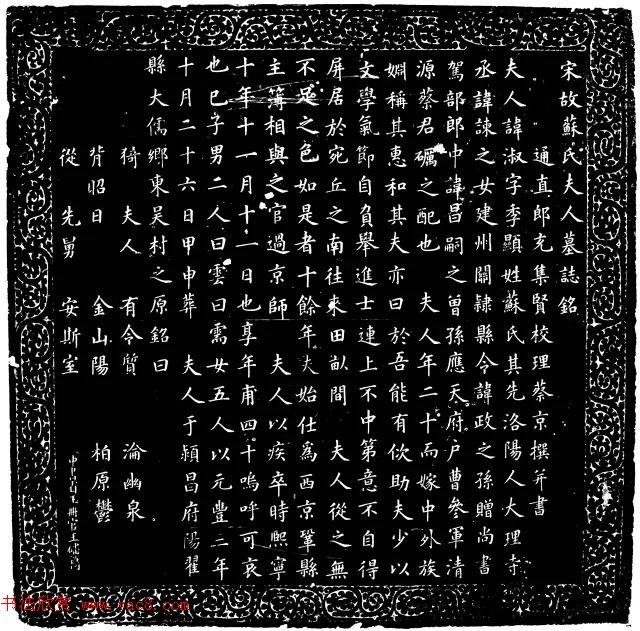 宋故蘇氏夫人墓誌銘
通直郎充集賢校理蔡京撰并書
夫人諱淑字季顯姓蘇氏其先洛陽人大理寺
丞諱諫之女建州關隷縣令諱政之孫贈尚書
駕部郎中諱昌嗣之曾孫應天府戶曹參軍清
源蔡君礪之配也 夫人年二十而嫁中外族
婣稱其惠和其夫亦曰於吾能有佽助夫少以
文學氣節自負舉進士連上不中第意不自得
屏居於宛丘之南往來田畝間 夫人從之無
不足之色如是者十餘年夫始仕為西京鞏縣
主簿相與之官過京師 夫人以疾卒時熙寧
十年十一月十一日也享年甫四十嗚呼可哀
也已子男二人曰雲曰需女五人以元豐二年
十月二十六日甲申葬 夫人于潁昌府陽翟
縣大儒鄉東吳村之原銘曰
猗 夫人 有令質 淪幽泉
背昭日 金山陽 柏原鬱
從 先舅 安斯室
www.yac8.com